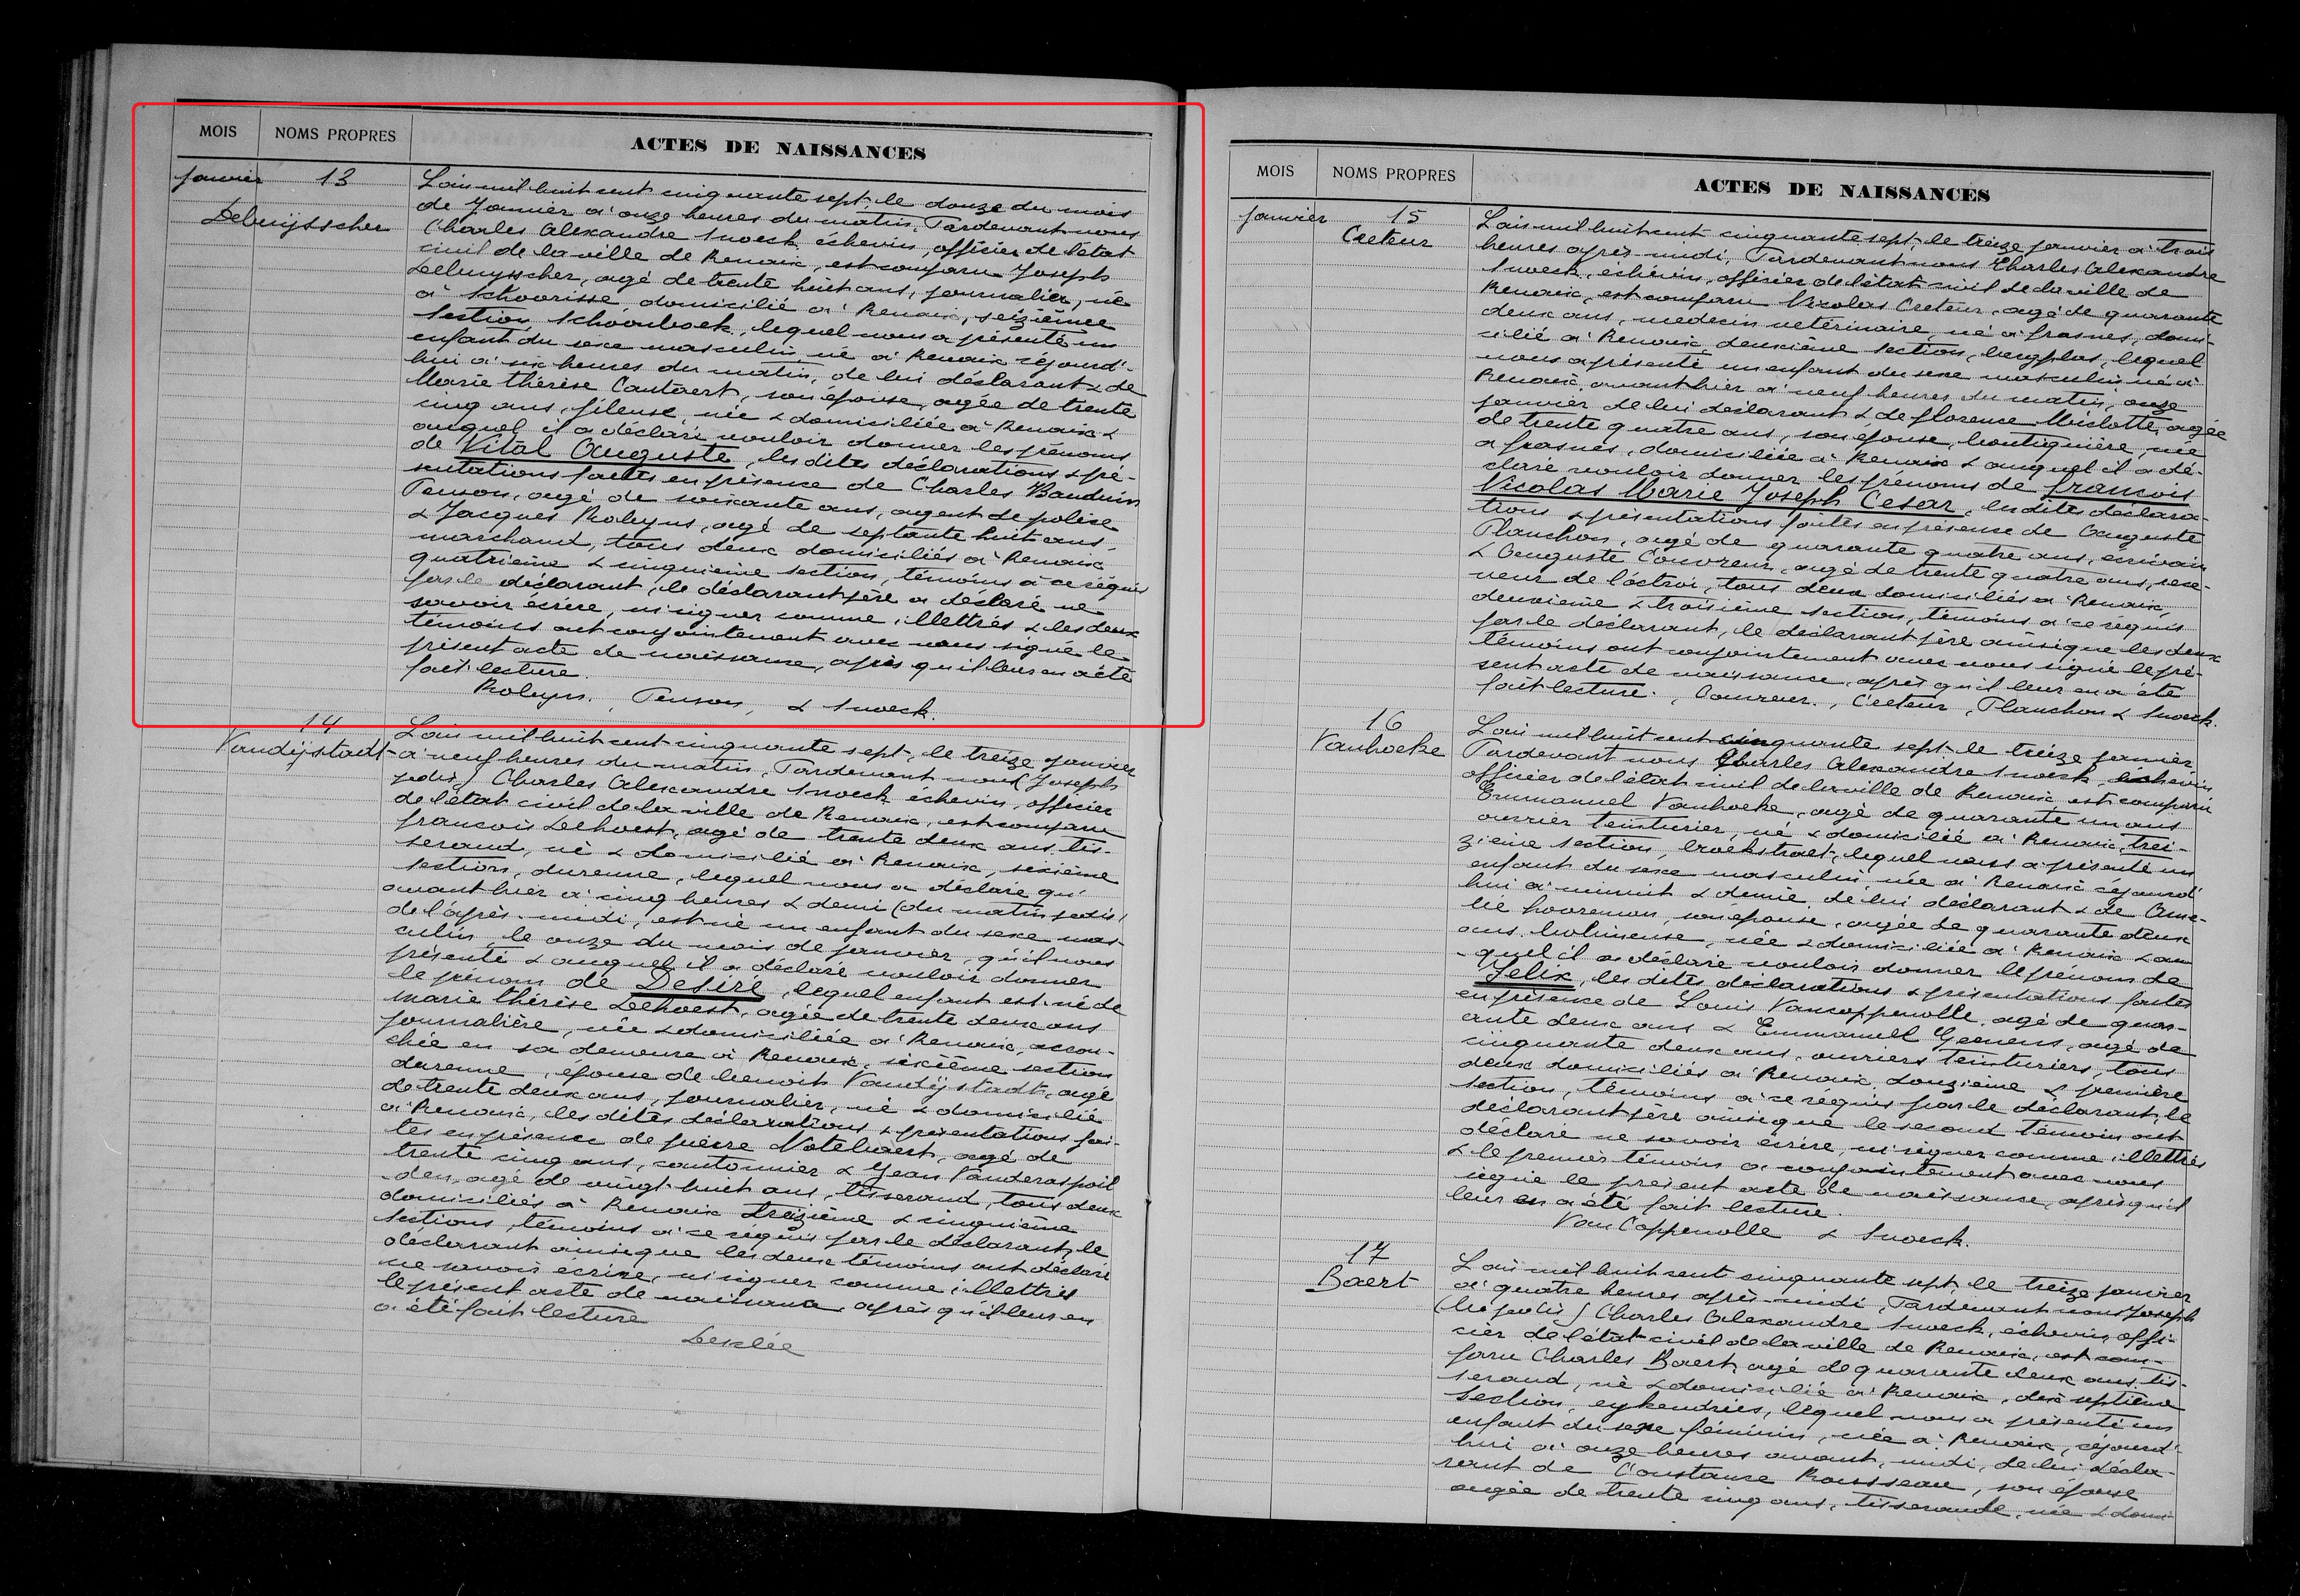 MOIS NOMS PROPRES ACTES DE NAISSANCES
janvier 13
Debuijsscher
L'an mil huit cent cinquante sept, le douze du mois
de Janvier à onze heures du matin, Pardevant nous
Charles Alexandre Snoeck, échevin, officier de l'état
civil de la ville de Renaix, est comparu Joseph
Debuysscher, agé de trente huit ans, journalier, né
à Schoorisse domicilié à Renaix, seizième
section, Schoonboek, lequel nous a présenté un
enfant du sexe masculin né à Renaix cejourd'-
hui à six heures du matin, de lui déclarant & de
Marie Thérèse Cantaert, son épouse, agée de trente
cinq ans, fileuse née & domiciliée à Renaix &
auquel il a déclaré vouloir donner les prénoms
de Vital Auguste, les dites déclarations & pré-
sentations faites en présence de Charles Bauduin
Penson, agé de soixante ans, agent de police
& Jacques Robyns, agé de septante huit ans,
marchand, tous deux domiciliés à Renaix
quatrième & cinquième section, témoins à ce réquis
par le déclarant, le déclarant père a déclaré ne
savoir écrire, ni signer comme illettrés & les deux
témoins ont conjointement avec nous signé le
présent acte de naissance, après qu'il leur en a été
fait lecture.
Robyns, Penson, & Snoeck.
14
Vandijstadt
L'an mil huit cent cinquante sept, le treize janvier
à neuf heures du matin, Pardevant nous (Joseph
jadis) Charles Alexandre Snoeck échevin, officier
de l'état civil de la ville de Renaix, est comparu
francois Dehoest, agé de trente deux ans, tis-
serand, né & domicilié à Renaix, sixième
section, durenne, lequel nous a déclaré qu'
avant hier à cinq heures & demi (du matin jadis)
de l'après-midi, est né un enfant du sexe mas-
culin, le onze du mois de janvier, qu'il nous
présenté & auquel il a déclaré vouloir donner
le prénom de Desiré, lequel enfant est né de
marie thérèse Dehoest, agée de trente deux ans
journalière, née & domiciliée à Renaix, accou-
chée en sa demeure à Renaix, sixième section
durenne, épouse de benoit Vandijstadt, agé
de trente deux ans, journalier, né & domicilié
à Renaix, les dites déclarations & présentations fai-
tes en présence de pierre Notebaert, agé de
trente cinq ans, cantonnier & Jean Vanderaspoil
den, agé de vingt-huit ans, tisserand, tous deux
domiciliés à Renaix treizième & cinquième
sections, témoins à ce réquis par le déclarant, le
déclarant ainsi que les deux témoins ont déclaré
ne savoir écrire, ni signer comme illettrés
le présent acte de naissance après qu'il leur en
a été fait lecture
MOIS NOMS PROPRES ACTES DE NAISSANCES
janvier 15
Creteur
L'an mil huit cent cinquante sept, le treize janvier à trois
heures après-midi, Pardevant nous Charles Alexandre
Snoeck, échevin, officier de l'état civil de la ville de
Renaix, est comparu Nicolas Creteur, agé de quarante
deux ans, medecin vetérinaire, né à frasnes, domi-
cilié à Renaix, deuxième section, bergplas, lequel
nous a présenté un enfant du sexe masculin né à
Renaix, avant hier à neuf heures du matin, onze
janvier de lui déclarant & de florence Miclotte, agée
de trente quatre ans, son épouse, boutiquière, née
à frasnes, domiciliée à Renaix & auquel il a dé-
claré vouloir donner les prénoms de francois
Nicolas Marie Joseph Cesar, les dites déclara-
tions & présentations faites en présence de Auguste
Planchon, agé de quarante quatre ans, écrivain
& Auguste Couvreur, agé de trente quatre ans, rece-
veur de l'octroi, tous deux domiciliés à Renaix,
deuxième & troisième section, témoins à ce réquis
par le déclarant, le déclarant père ainsi que les deux
témoins ont conjointement avec nous signé le pré-
sent acte de naissance, après qu'il leur en a été
fait lecture. Couvreur., Creteur, Planchon & Snoeck.
16
Vanhoeke
L'an mil huit cent cinquante sept le treize janvier
Pardevant nous Charles Alexandre Snoeck, échevin
officier de l'état civil de la ville de Renaix, est comparu
Emmanuel Vanhoeke, agé de quarante un ans
ouvrier teinturier, né & domicilié à Renaix, trei-
zième section, broekstraet, lequel nous a présenté un
enfant du sexe masculin, née à Renaix cejourd'
hui à minuit & demie, de lui déclarant & de Ame-
lie hooreman, son épouse, agée de quarante deux
ans, bobineuse, née & domiciliée à Renaix & au
quel il a déclaré vouloir donner le prénom de
Felix, les dites déclarations & présentations faites
en présence de Louis Vancoppenolle, agé de quar-
ante deux ans & Emmanuel Geenens, agé de
cinquante deux ans, ouvriers teinturiers, tous
deux domiciliés à Renaix, douzième & première
section, témoins à ce réquis par le déclarant, le
déclarant père ainsi que le second témoin ont
déclaré ne savoir écrire, ni signer comme illettrés
& le premier témoin a conjointement avec nous
signé le présent acte de naissance, après qu'il
leur en a été fait lecture.
Van Coppenolle & Snoeck.
17
Baert
L'an mil huit cent cinquante sept, le treize janvier
à quatre heures après-midi, Pardevant nous Joseph
jadis) Charles Alexandre Snoeck, échevin, offi-
cier de l'état-civil de la ville de Renaix, est com-
paru Charles Baert, agé de quarante deux ans, tis-
serand, né & domicilié à Renaix, dix septième
section, eykendries, lequel nous a présenté un
enfant du sexe féminin, née à Renaix, cejourd'
hui à onze heures avant, midi, de lui décla-
rant de Constance Rousseau, son épouse
agée de trente cinq ans, tisserande, née & domi-